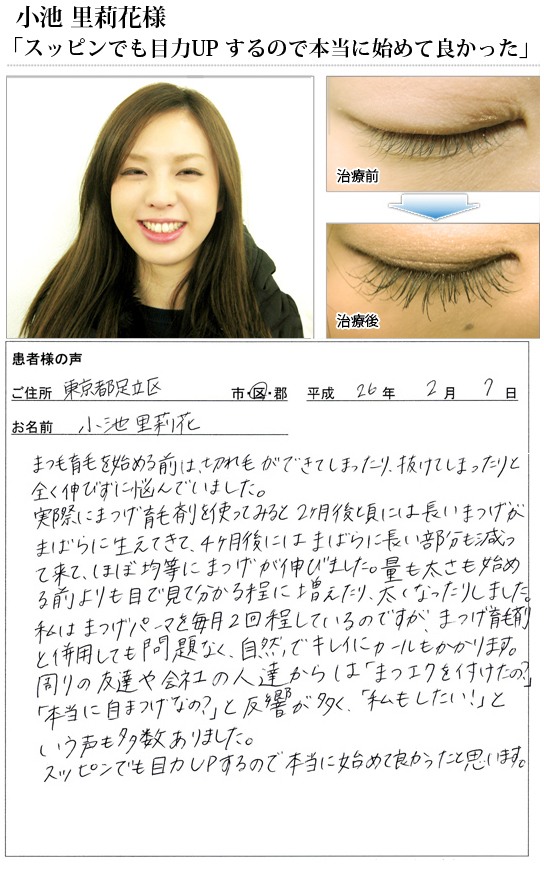 小池 里莉花様
「スッピンでも目力UP するので本当に始めて良かった」
治療前
治療後
患者様の声
ご住所 東京都足立区 市・区・郡 平成 26 年 2 月 7 日
お名前 小池里莉花
まつ毛育毛を始める前は、切れ毛ができてしまったり、抜けてしまったりと
全く伸びずに悩んでいました。
実際にまつげ育毛剤を使ってみると2ヶ月後頃には長いまつげが
まばらに生えてきて、4ヶ月後にはまばらに長い部分も減っ
て来て、ほぼ均等にまつげが伸びました。量も太さも始め
る前よりも目で見て分かる程に増えたり、太くなったりしました。
私はまつげパーマを毎月2回程しているのですが、まつげ育毛剤
と併用しても問題なく、自然でキレイにカールもかかります。
周りの友達や会社の人達からは「まつエクを付けたの?」
「本当に自まつげなの?」と反響が多く、「私もしたい!」と
いう声も多数ありました。
スッピンでも目力UPするので本当に始めて良かったと思います。